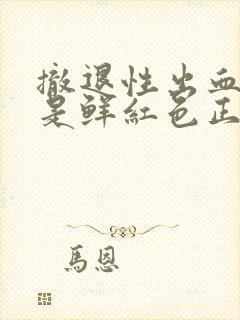 撤退性出血
是鲜紅色正
馬恩